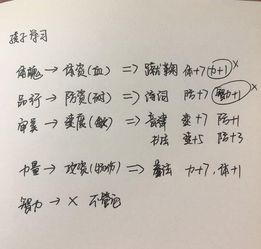 孩子学习
体魄 → 体资(血) => 蹴鞠 体+7 力+1 ×
品行 → 防资(耐) => 诗词 防+7 智力+1 ×
审美 → 速资(敏) => 音律 速+7 防+1
书法 速+5 防+3
力量 → 攻资(物伤) => 拳法 力+7, 体+1
智力 → × 不管它